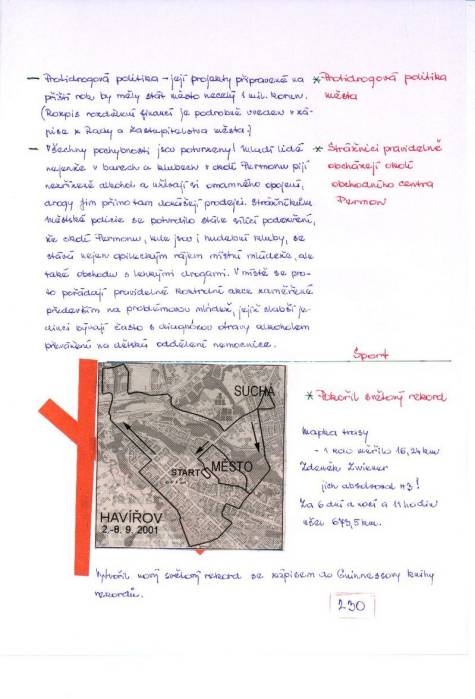 - Protidrogová politika - její projekty připravené na
příští rok by měly stát město necelý 1 mil. korun.
(Rozpis rozdělení financí je podrobně uveden v zá-
pise z Rady a Zastupitelstva města.)
* Protidrogová politika
města
- Všechny pochybnosti jsou potvrzeny! Mladí lidé
nejenže v barech a klubech v okolí Permonu pijí
nezřízeně alkohol a užívají si omamného opojení,
drogy jim přímo tam dokážejí prodejci. Strážníkům
Městské policie se potvrdilo stále sílící podezření,
že okolí Permonu, kde jsou i hudební kluby, se
stává nejen opileckým rájem místní mládeže, ale
také obchodu s lehkými drogami. V místě se pro-
to pořádají pravidelné kontrolní akce zaměřené
především na problémovou mládež, jejíž slabší je-
dinci bývají často s diagnózou otravy alkoholem
převáženi na dětské oddělení nemocnice.
* Strážníci pravidelně
obcházejí okolí
obchodního centra
Permon
Sport
* Pokořil světový rekord
SUCHÁ
MĚSTO
START
HAVÍŘOV
2.-8. 9. 2001
mapka trasy
- 1 kolo měřilo 16,24km
Zdeněk Zwiener
jich absolvoval
Za 6 dní a nocí a 11 hodin
km.
Vytvořil nový světový rekord se zápisem do Guinnessovy knihy
rekordů.
230